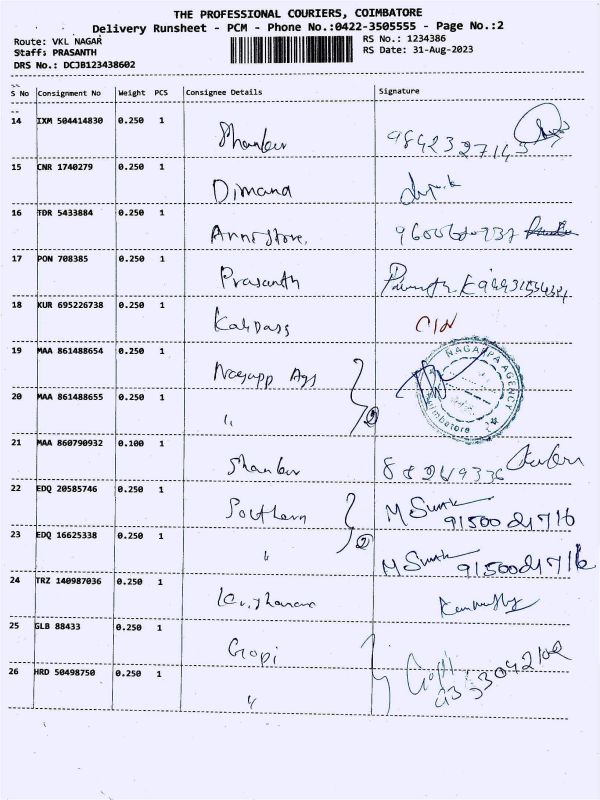 THE PROFESSIONAL COURIERS, COIMBATORE
Delivery Runsheet - PCM - Phone No.:0422-3505555 - Page No.:2
Route: VKL NAGAR
RS No.: 1234386
Staff: PRASANTH
RS Date: 31-Aug-2023
DRS No.: DCJB123438602
S No Consignment No Weight PCS Consignee Details Signature
14 IXM 504414830 0.250 1 Shankar 9842327143
15 CNR 1740279 0.250 1 Dimand
16 TDR 5433884 0.250 1
17 PON 708385 0.250 1 Prasanth
18 KUR 695226738 0.250 1 Kalidass
19 MAA 861488654 0.250 1 Nagapp Ags
NAGAPPA AGENCY
Coimbatore
20 MAA 861488655 0.250 1 " 2
21 MAA 860790932 0.100 1 Shankar
22 EDQ 20585746 0.250 1 Southern
23 EDQ 16625338 0.250 1 " 2
24 TRZ 140987036 0.250 1
25 GLB 88433 0.250 1 Gopi
26 HRD 50498750 0.250 1 " Gopi